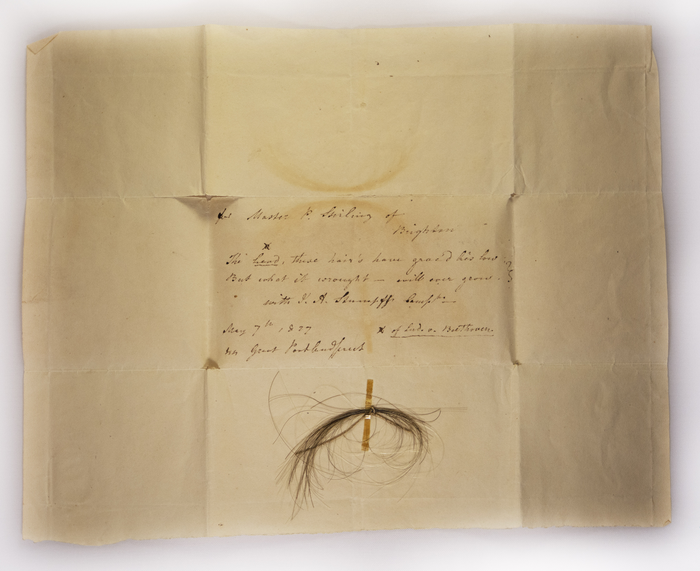 for Master P. Stirling of
Brighton
The head, these hair's have grac'd lies low
But what it wrought – will ever grow.
with J. A. Stumpff's Compts.
May 7th 1827
x of Lud. v. Beethoven.
44 Great Portland Street